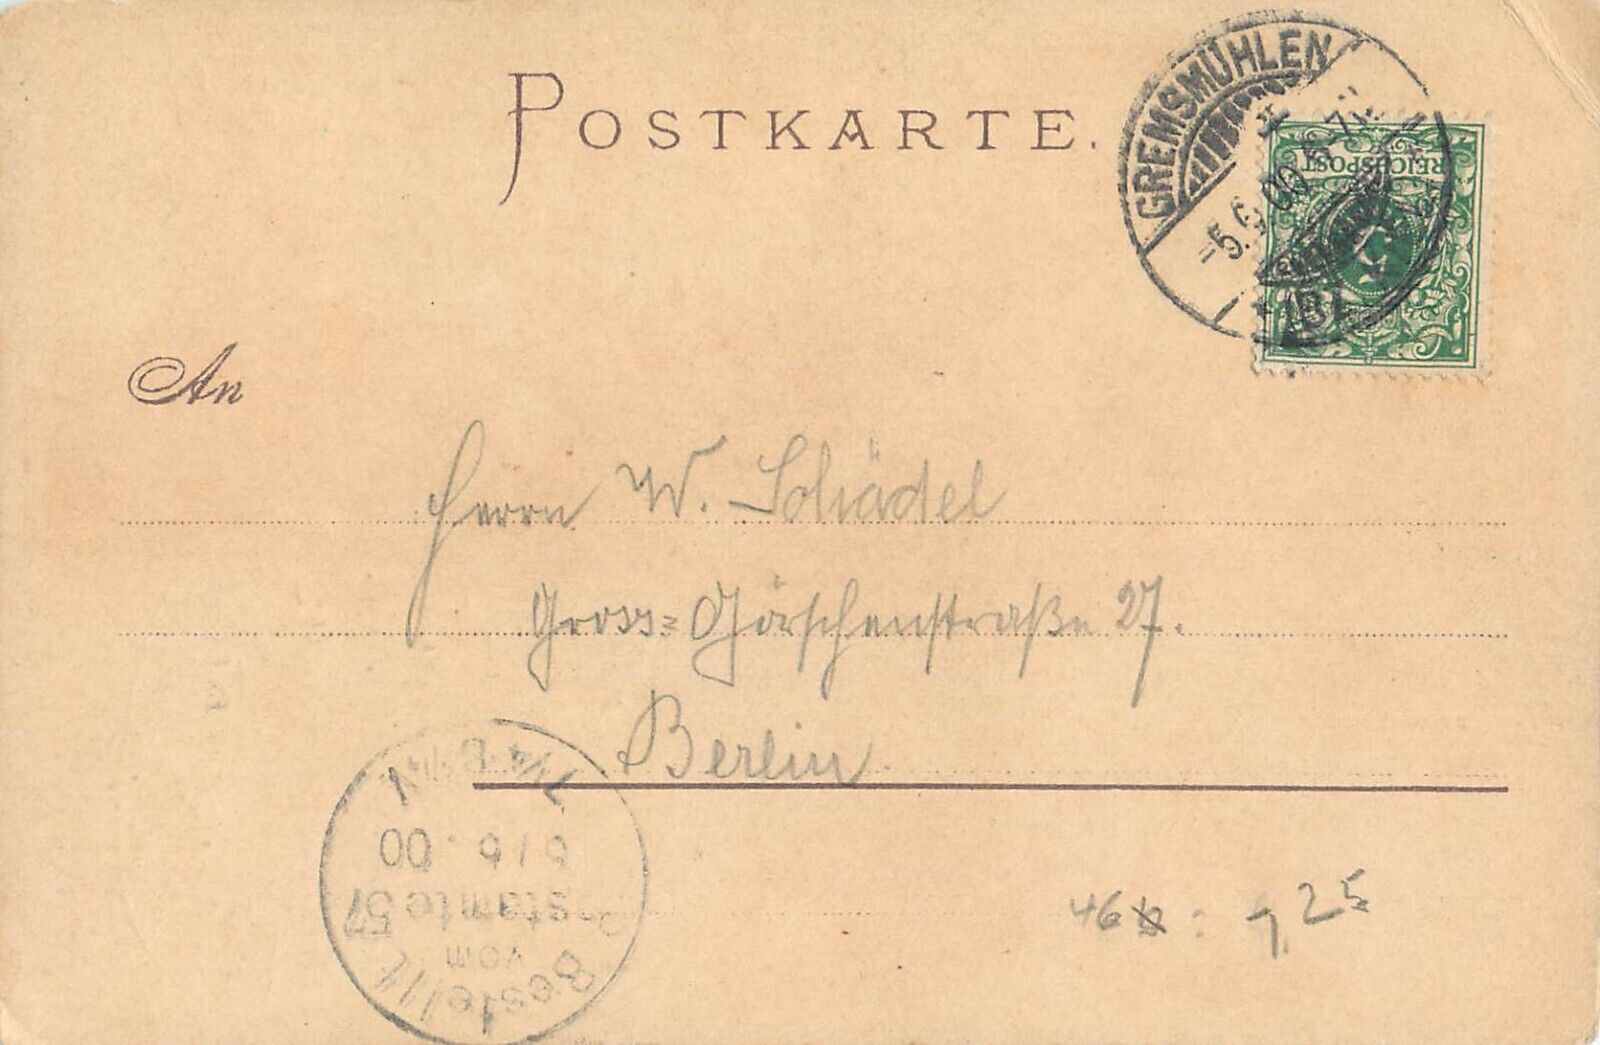 POSTKARTE.
GREMSMÜHLEN
-5.6.00
REICHSPOST
5
An
Herrn W. Schädel
Gross-Görschenstraße 27.
Berlin
Bestellt
vom
Postamte 57
6/6.00
7¼-8½V
46 : 9,25